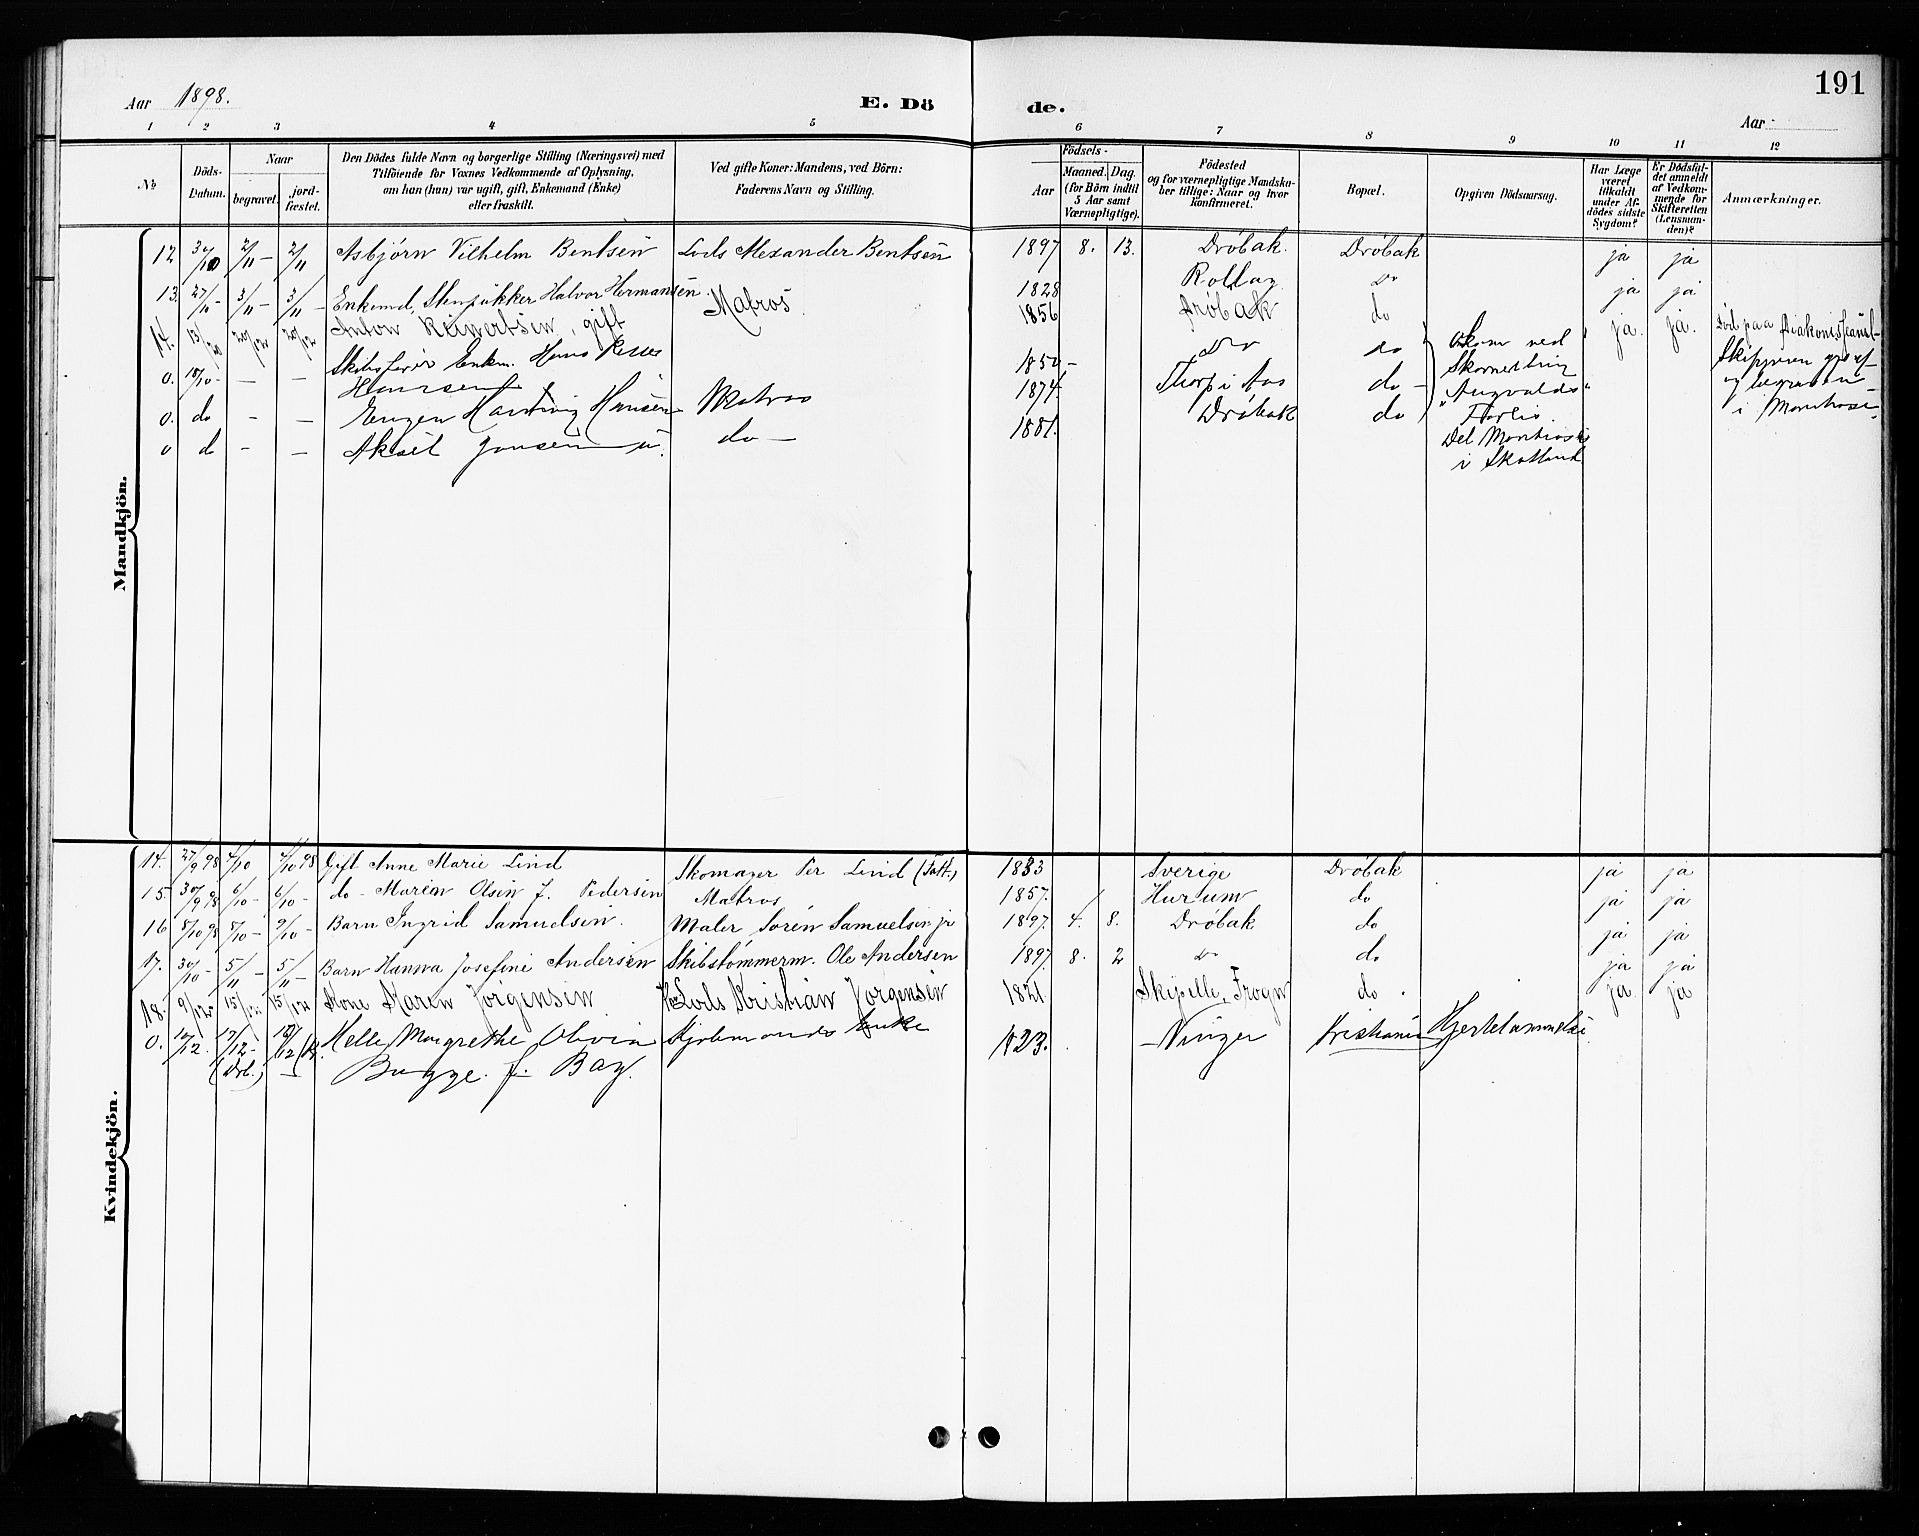 191
Aar 1898.
E. Dö de.
Aar
1 2 3 4 5 6 7 8 9 10 11 12
No
Döds-Datum.
Naar begravet. jordfæstet.
Den Dödes fulde Navn og borgerlige Stilling (Næringsvei) med Tilföiende for Voxnes Vedkommende af Oplysning, om han (hun) var ugift, gift, Enkemand (Enke) eller fraskilt.
Ved gifte Koner: Mandens, ved Börn: Faderens Navn og Stilling.
Födsels-
Aar
Maaned. Dag. (for Börn indtil 5 Aar samt Værnepligtige).
Födested og for værnepligtige Mandskaber tillige: Naar og hvor konfirmeret.
Bopæl.
Opgiven Dödsaarsag.
Har Læge været tilkaldt under Afdödes sidste Sygdom?
Er Dödsfaldet anmeldt af Vedkommende for Skifteretten (Lensmanden)?
Anmærkninger.
Mandkjön.
12 2/11 - 2/11 Asbjørn Vilhelm Bentsen Lods Alexander Bentsen 1897 8. 13. Drøbak. Drøbak ja ja
13. 3/11 - 3/11 - Enkemd. Halvor Hermansen 1828 Rollag do ja ja
14. 20/12 20/12 Anton Reinertsen, gift Matros 1856 Drøbak do ja. ja. Död paa
0. 18/10 - — — Skibsfører Enkm. Hans
Hansen 1850 - do do Omkom ved
0. do - — Eugen Hartvig Hansen Matros 1874. Thorp i Aas do - "Augvalds"
0 d - — Aksel Jonsen u. do — 1881. Drøbak do Forlis.
Skipperen
og begraven
i Montrose
Del Montrose
i Skotland
Kvindekjön.
14. 27/9 98 4/10 4/10 98 Gift Anne Marie Lind Skomager Per Lind 1833 Sverige Drøbak ja ja
15. 30/9 98 6/10 - 6/10 - do - Maren Olsen f. Pedersen Matros 1857. Hurum do ja ja
16 5/10 98 8/10 - 9/10 - Barn Ingrid Samuelsen. Maler Søren Samuelsen jr 1897. 4. 8. Drøbak do ja ja
17. 30/10 - 5/11 - 5/11 - Barn Hanna Josefine Andersen Skibstømmerm. Ole Andersen 1897. 8. 2 do do ja ja
18. 9/12 15/12 15/12 Kone Karen Jørgensen Lods Kristian Jørgensen 1821 Frogn do ja ja
0. 10/12. 17/12 - Helle Margrethe Olivia enke 1823. Vinger Kristiania
(Drb.) Bugge. f. Bay.